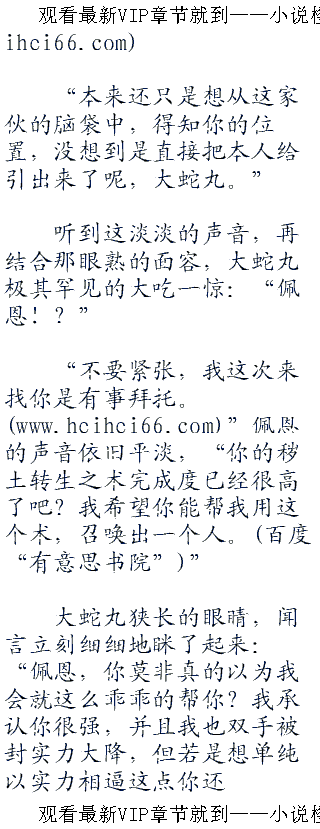 观看最新VIP章节就到——小说
ihci66.com)
“本来还只是想从这家
伙的脑袋中，得知你的位
置，没想到是直接把本人给
引出来了呢，大蛇丸。”
听到这淡淡的声音，再
结合那眼熟的面容，大蛇丸
极其罕见的大吃一惊：“佩
恩！？”
“不要紧张，我这次来
找你是有事拜托。
(www.hcihci66.com)”佩恩
的声音依旧平淡，“你的秽
土转生之术完成度已经很高
了吧？我希望你能帮我用这
个术，召唤出一个人。(百度
“有意思书院”)”
大蛇丸狭长的眼睛，闻
言立刻细细地眯了起来：
“佩恩，你莫非真的以为我
会就这么乖乖的帮你？我承
认你很强，并且我也双手被
封实力大降，但若是想单纯
以实力相逼这点你还
观看最新VIP章节就到——小说